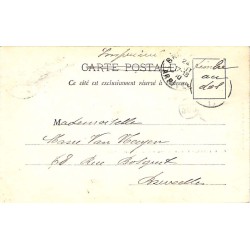 Imprimé
CARTE POSTALE
Ce côté est exclusivement réservé à l'adresse
Timbre
au
dos
Mademoiselle
Marie Van
68 Rue
Bruxelles